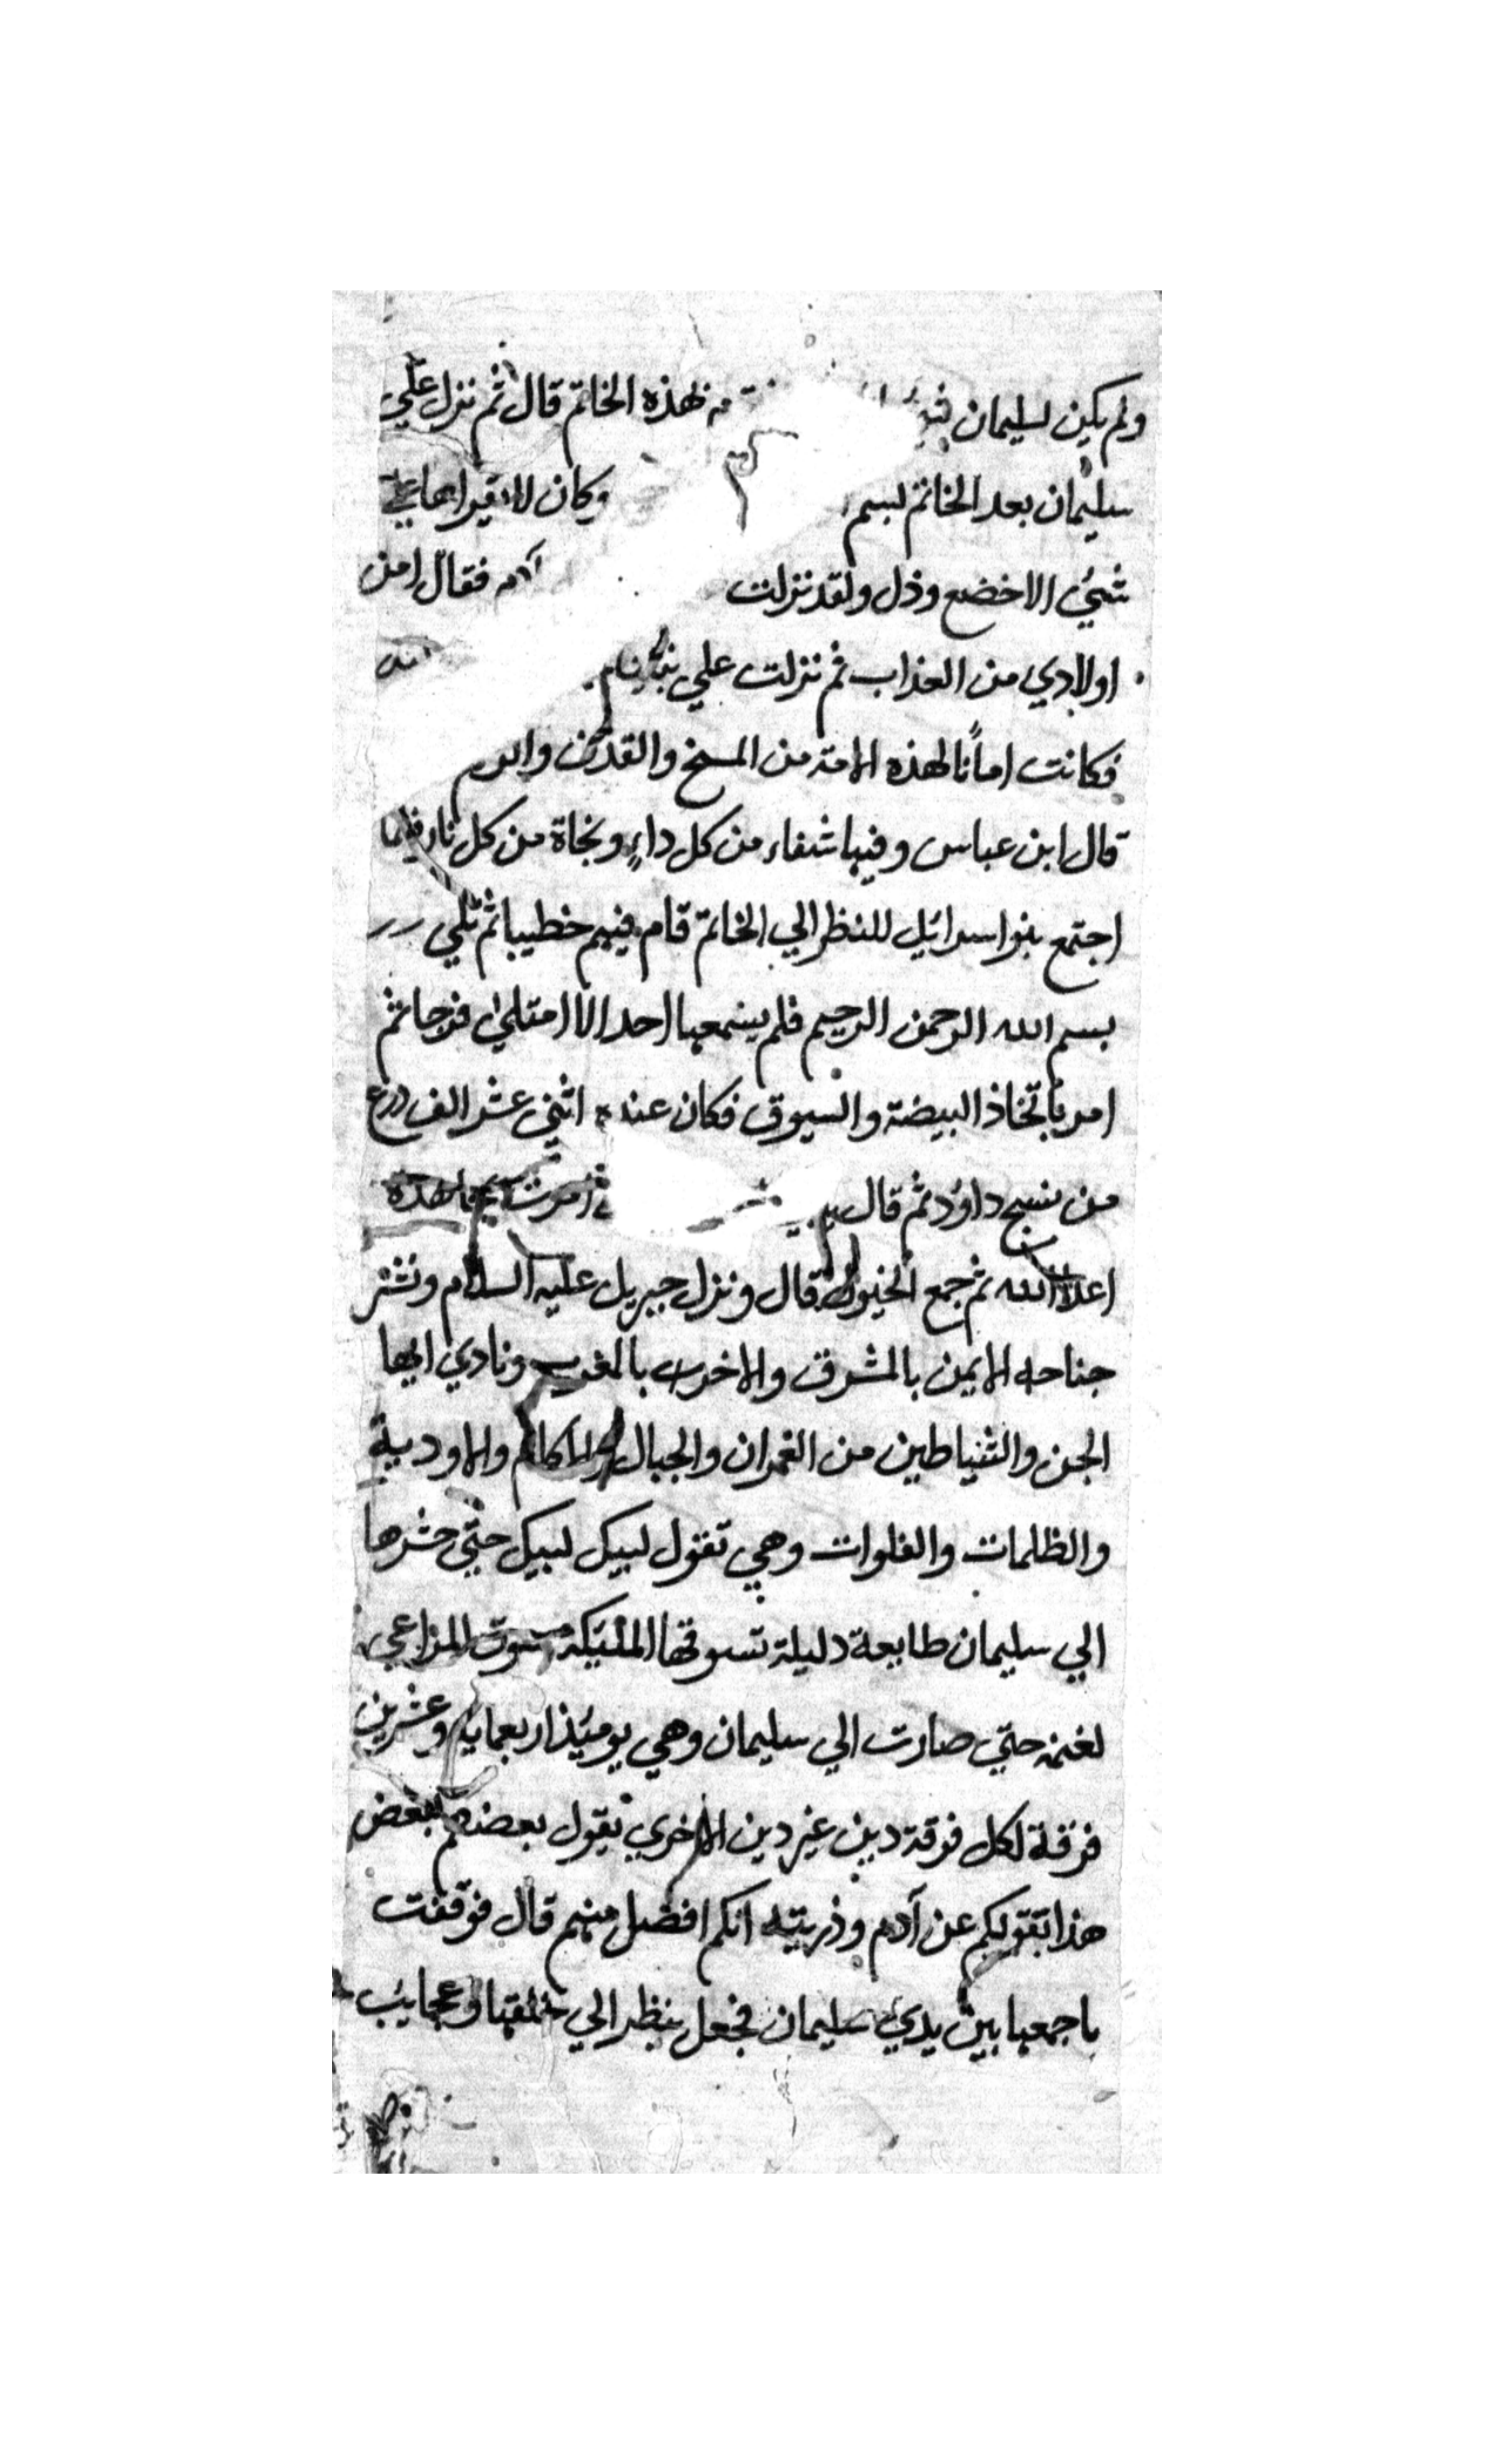 ولم يكن لسليمان لهذه الخاتم قال ثم نزل علي
سليمان بعد الخاتم بسم وكان لا يقراها علي
شيئ الا خضع وذل ولقد نزلت آدم فقال امن
اولادي من العذاب ثم نزلت علي
فكانت امانًا لهذه الامة من المسخ والقذف
قال ابن عباس وفيها شفاء من كل داءٍ ونجاة من كل نار فلما
اجتمع بنو اسرائيل للنظر الي الخاتم قام فيهم خطيبا ثم تلي
بسم الله الرحمن الرحيم فلم يسمعها احد الا امتلئ فرحا ثم
امر باتخاذ البيضة والسيوف فكان عنده اثني عشر الف درع
من نسج داؤد ثم قال امرت
اعداء الله ثم جمع الخيول قال ونزل جبريل عليه السلام ونشر
جناحه الايمن بالمشرق والاخر بالمغرب ونادي ايها
الجن والشياطين من الغمران والجبال والاكام والاودية
والظلمات والفلوات وهي تقول لبيك لبيك حتي حشرها
الي سليمان طايعة دليلة تسوقها الملئيكة سوق المزاعي
لغنمه حتي صارت الي سليمان وهي يومئذ اربعماية وعشرين
فرقة لكل فرقة دين غير دين الاخري يقول بعضهم لبعض
هذا بقولكم عن آدم وذريته انكم افضل منهم قال فوقفت
باجمعها بين يدي سليمان فجعل ينظر الي خلقها وعجايب